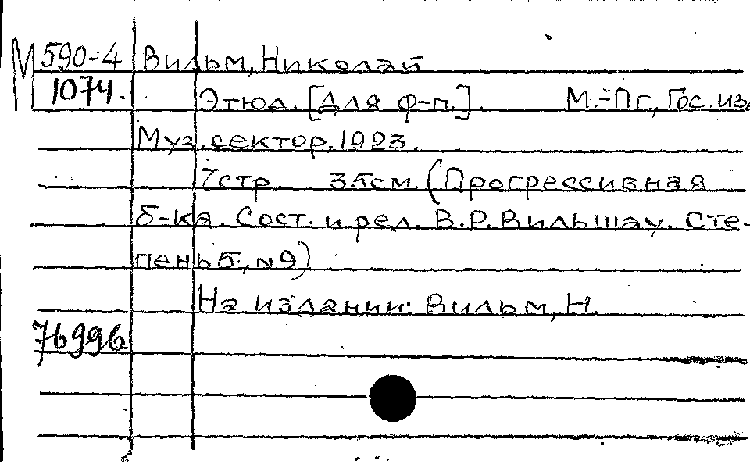 М 590-4 Вильм, Николай
1074. Этюд. [Для ф-п.]. М.-Пг, Гос. из
Муз. сектор, 1923.
7 стр 35 см (Прогрессивная
б-ка. Сост. и ред. В.Р. Вильшау. Сте-
пень 5, №9)
На издании: Вильм, Н.
76996